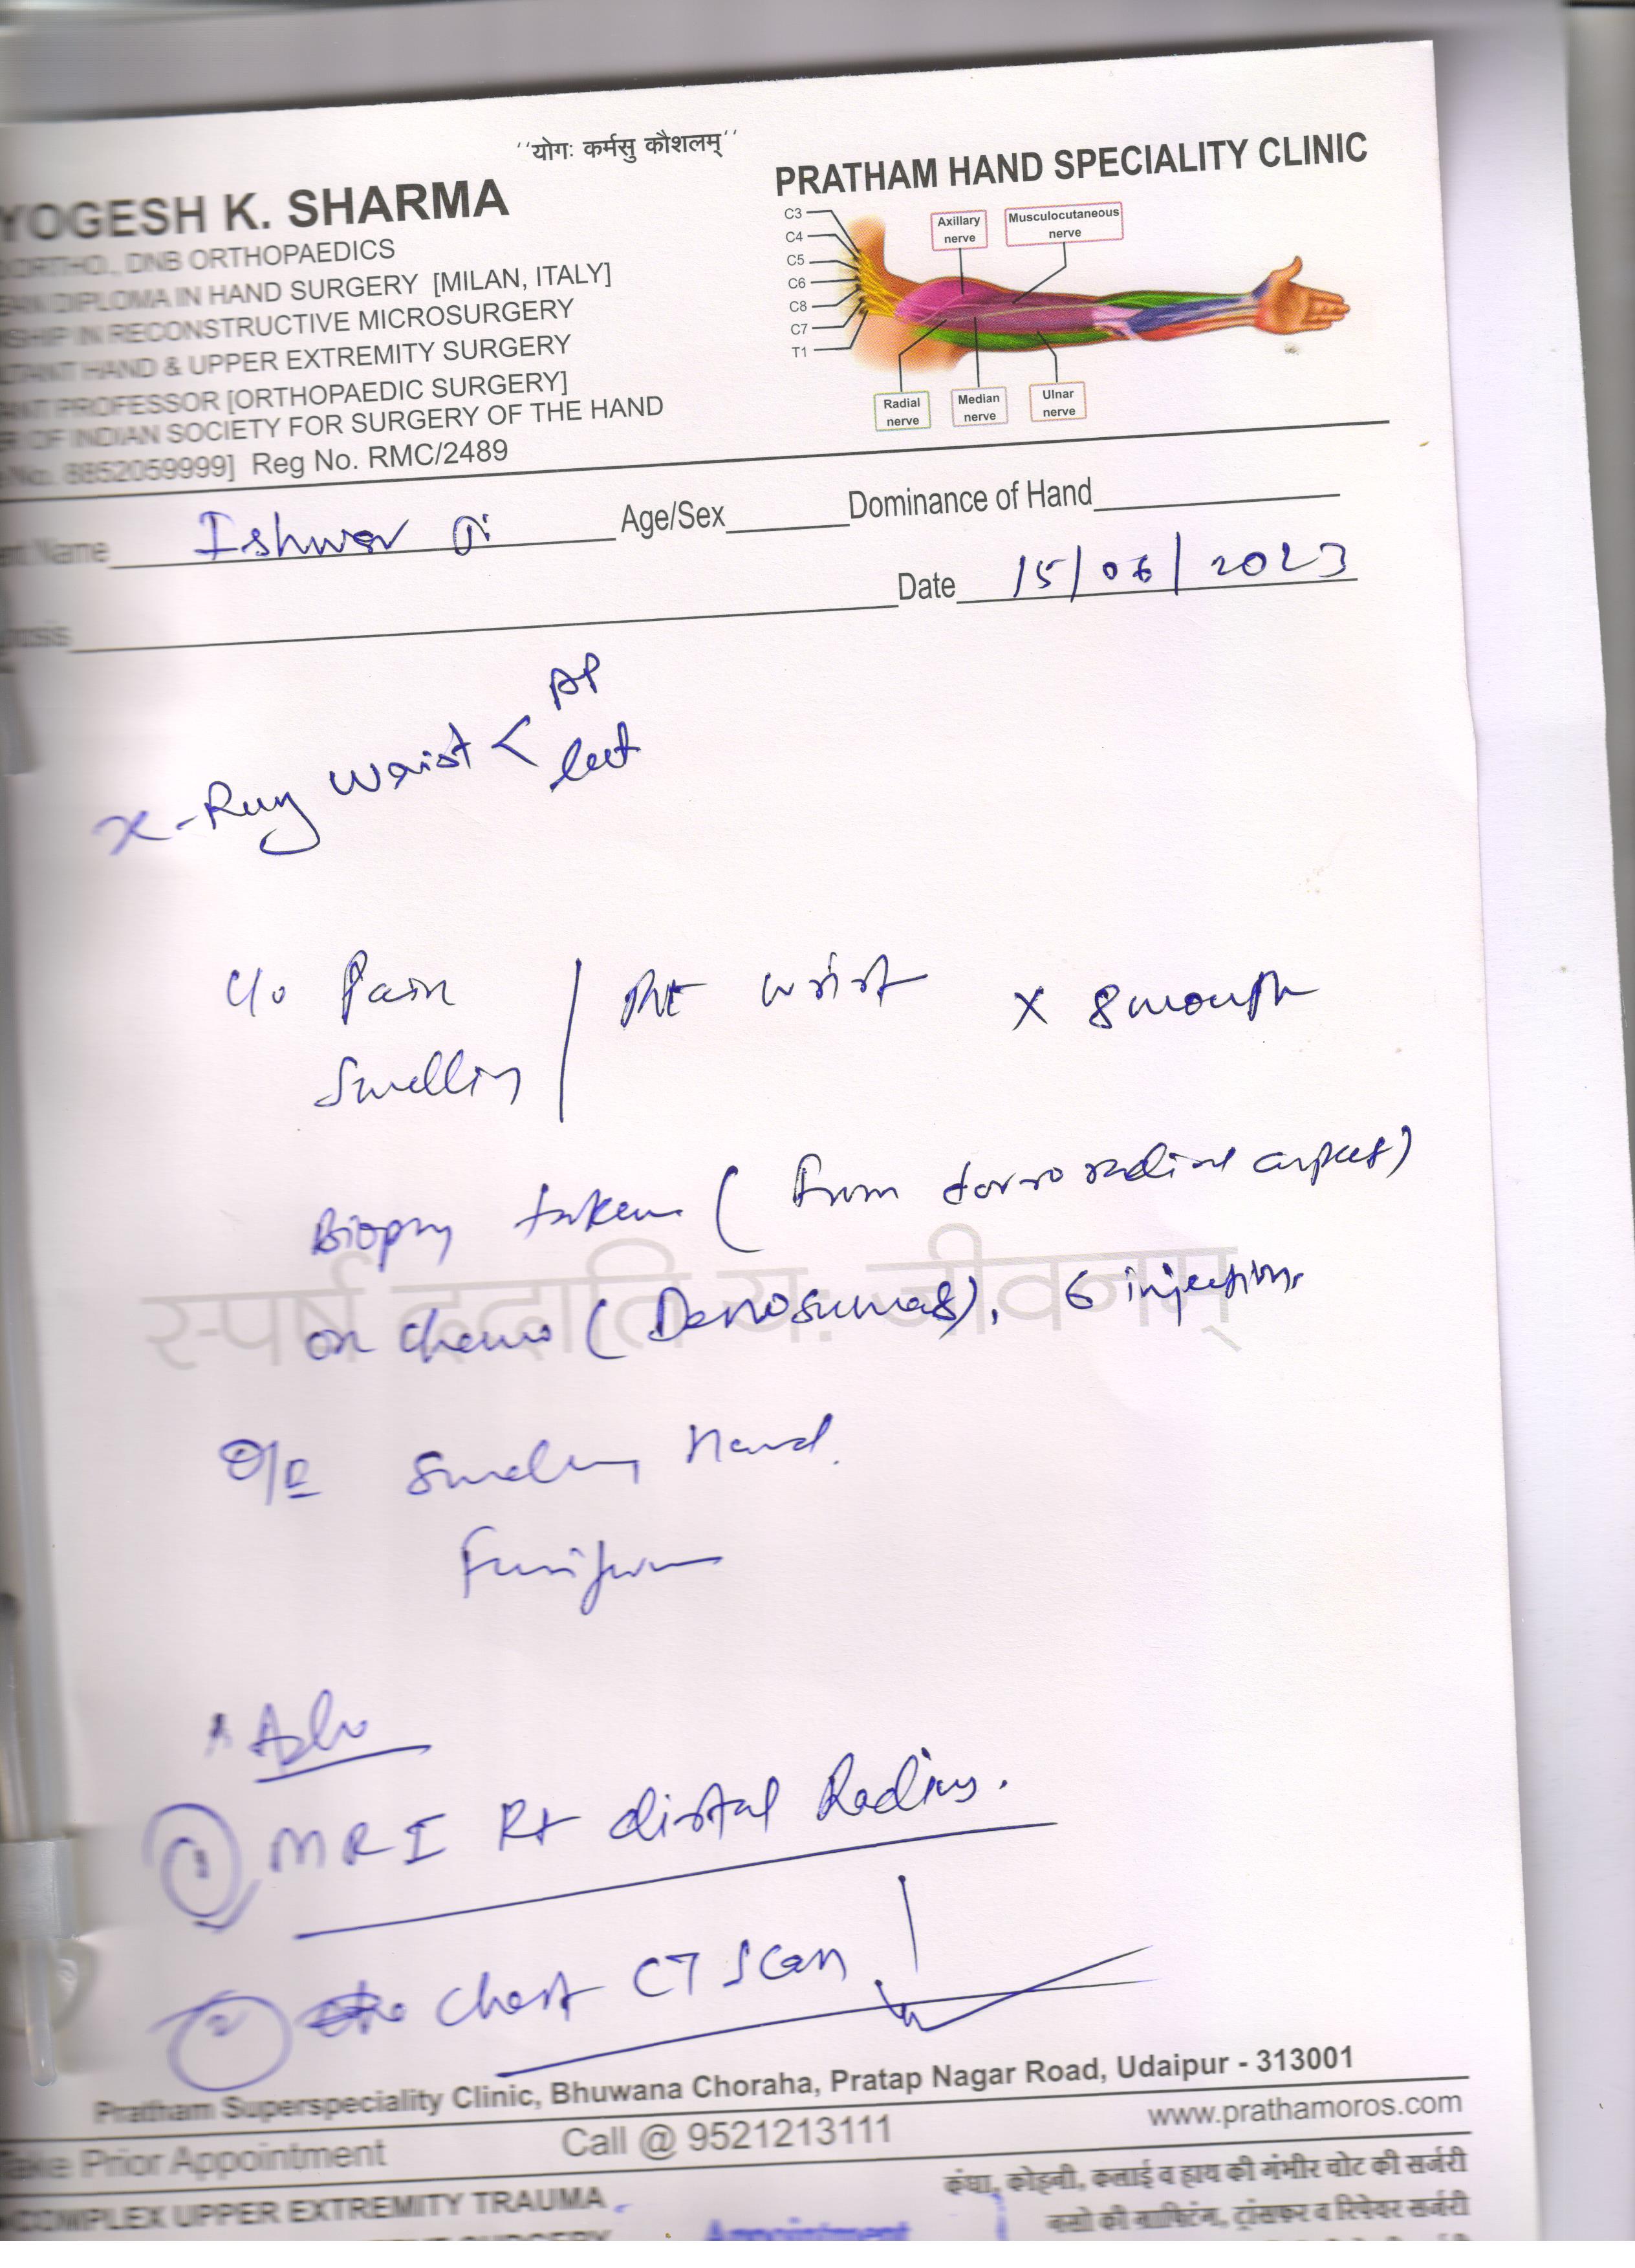 ''योगः कर्मसु कौशलम्''
YOGESH K. SHARMA
ORTHO., DNB ORTHOPAEDICS
DIPLOMA IN HAND SURGERY [MILAN, ITALY]
IN RECONSTRUCTIVE MICROSURGERY
HAND & UPPER EXTREMITY SURGERY
PROFESSOR [ORTHOPAEDIC SURGERY]
OF INDIAN SOCIETY FOR SURGERY OF THE HAND
8852059999] Reg No. RMC/2489
PRATHAM HAND SPECIALITY CLINIC
C3
C4
C5
C6
C8
C7
T1
Axillary nerve
Musculocutaneous nerve
Radial nerve
Median nerve
Ulnar nerve
Name Ishwar Ji Age/Sex Dominance of Hand
Date 15/06/2023
X-Ray Waist < AP
Lat
C/o Pain / Rt wrist x 8 month
Swelling
Biopsy taken ( from dorso radial aspect)
on chemo ( Denosumab), 6 injections
O/E Swelling Hard.
Adv
1 MRI Rt distal Radius.
2 Chest CT Scan
स्पर्ष ददाति यः जीवनाम्
Pratham Superspeciality Clinic, Bhuwana Choraha, Pratap Nagar Road, Udaipur - 313001
Take Prior Appointment Call @ 9521213111 www.prathamoros.com
COMPLEX UPPER EXTREMITY TRAUMA
कंधा, कोहनी, कलाई व हाथ की गंभीर चोट की सर्जरी
नसो की ग्राफ्टिंग, ट्रांसफर व रिपेयर सर्जरी
SURGERY
Appointment